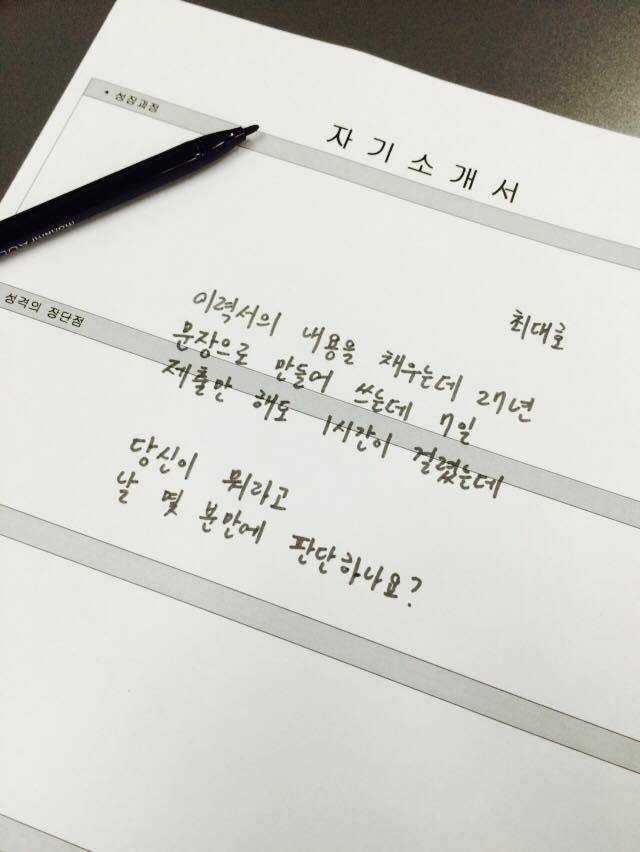 • 성장과정
자기소개서
최대호
이력서의 내용을 채우는데 27년
문장으로 만들어 쓰는데 7일
제출만 해도 1시간이 걸렸는데
성격의 장단점
당신이 뭐라고
날 몇 분만에 판단하나요?